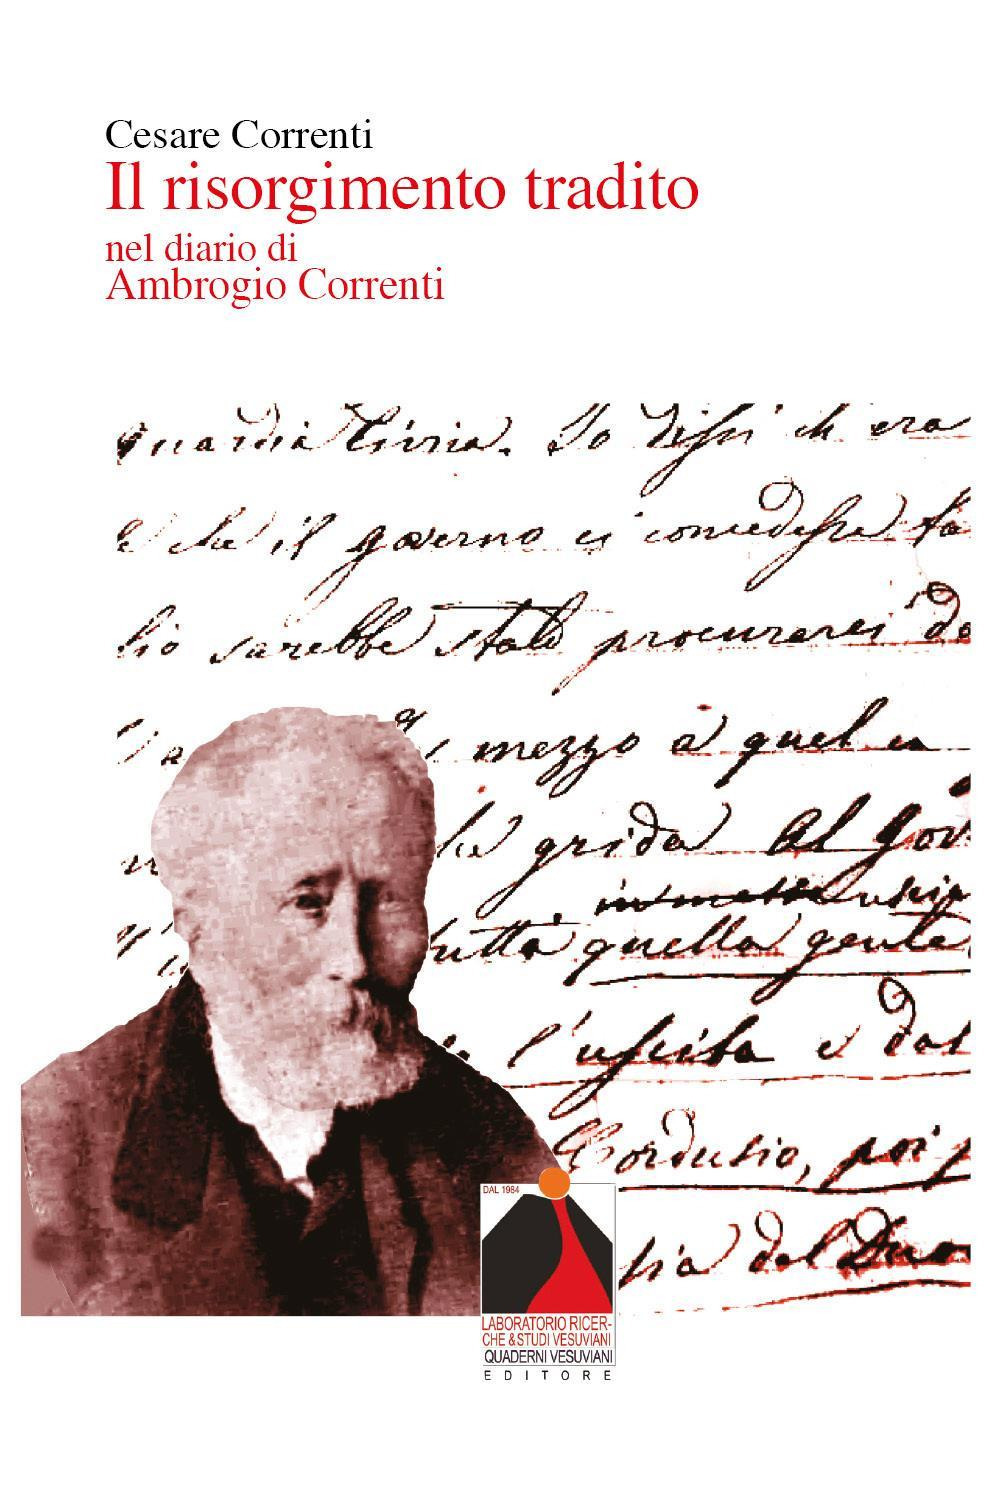 Cesare Correnti
Il risorgimento tradito
nel diario di
Ambrogio Correnti
guardia civica. Io dissi ch era
e che il governo ci concedesse fa
lio sarebbe stato procurarci de
mezzo a quel
che grida al gov
tutta quella gente
l'uscita e dal
Cordusio, poi p
sia del Duo
DAL 1984
LABORATORIO RICER-
CHE & STUDI VESUVIANI
QUADERNI VESUVIANI
EDITORE